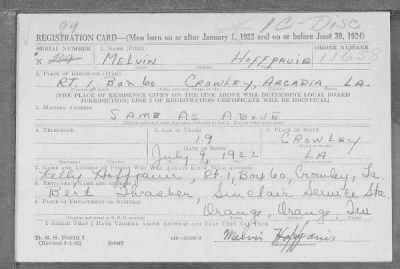 99
REGISTRATION CARD—(Men born on or after January 1, 1922 and on or before June 30, 1924)
SERIAL NUMBER 1. NAME (Print) ORDER NUMBER
MELVIN HOFFPAUIR
2. PLACE OF RESIDENCE (Print)
RT. 1 BOX 60 CROWLEY, ARCADIA LA.
[THE PLACE OF RESIDENCE GIVEN ON THE LINE ABOVE WILL DETERMINE LOCAL BOARD
JURISDICTION; LINE 2 OF REGISTRATION CERTIFICATE WILL BE IDENTICAL]
3. MAILING ADDRESS
SAME AS ABOVE
4. TELEPHONE 5. AGE IN YEARS 6. PLACE OF BIRTH
19 CROWLEY
July 9, 1922 LA.
Kelly Hoffpauir, Rt. 1, Box 60, Crowley, La.
8. EMPLOYER'S NAME AND ADDRESS
Bert Thrasher, Sinclair Service Sta.
9. PLACE OF EMPLOYMENT OR BUSINESS
Orange, Orange, Tex
I AFFIRM THAT I HAVE VERIFIED ABOVE ANSWERS AND THAT THEY ARE TRUE.
D. S. S. Form 1
Melvin Hoffpauir